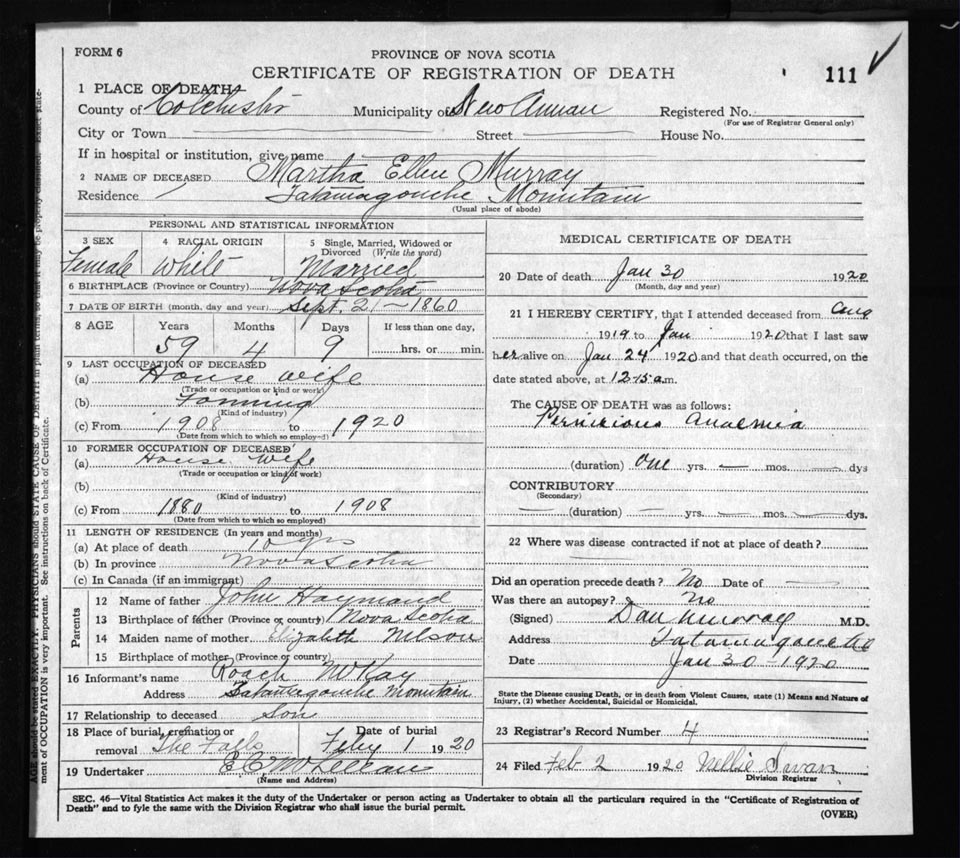 FORM 6
PROVINCE OF NOVA SCOTIA
CERTIFICATE OF REGISTRATION OF DEATH
111
1 PLACE OF DEATH
County of Colchester Municipality of New Annan Registered No.
(For use of Registrar General only)
City or Town Street House No.
If in hospital or institution, give name
2 NAME OF DECEASED Martha Ellen Murray
Residence Tatamagouche Mountain
(Usual place of abode)
PERSONAL AND STATISTICAL INFORMATION
3 SEX 4 RACIAL ORIGIN 5 Single, Married, Widowed or Divorced (Write the word)
Female White Married
6 BIRTHPLACE (Province or Country) Nova Scotia
7 DATE OF BIRTH (month, day and year) Sept. 21 - 1860
8 AGE Years Months Days If less than one day,
59 4 9 hrs. or min.
9 LAST OCCUPATION OF DECEASED
(a) House wife
(Trade or occupation or kind or work)
(b) Farming
(Kind of industry)
(c) From 1908 to 1920
(Date from which to which so employed)
10 FORMER OCCUPATION OF DECEASED
(a) House wife
(Trade or occupation or kind of work)
(b)
(Kind of industry)
(c) From 1880 to 1908
(Date from which to which so employed)
11 LENGTH OF RESIDENCE (In years and months)
(a) At place of death 10 yrs
(b) In province Nova Scotia
(c) In Canada (if an immigrant)
Parents
12 Name of father John
13 Birthplace of father (Province or country) Nova Scotia
14 Maiden name of mother Elizabeth Nelson
15 Birthplace of mother (Province or country)
16 Informant's name Roach McKay
Address Tatamagouche Mountain
17 Relationship to deceased son
18 Place of burial, cremation or removal The Falls Date of burial Feby 1 1920
19 Undertaker
(Name and Address)
MEDICAL CERTIFICATE OF DEATH
20 Date of death Jan 30 1920
(Month, day and year)
21 I HEREBY CERTIFY, that I attended deceased from Aug
1919 to Jan 1920 that I last saw
her alive on Jan 24 1920 and that death occurred, on the
date stated above, at 12-15 a.m.
The CAUSE OF DEATH was as follows:
Pernicious Anaemia
(duration) One yrs. — mos. — dys
CONTRIBUTORY
(Secondary)
— (duration) — yrs. — mos. — dys.
22 Where was disease contracted if not at place of death?
Did an operation precede death? No Date of —
Was there an autopsy? No
(Signed) Dan Murray M.D.
Address Tatamagouche
Date Jan 30 - 1920
State the Disease causing Death, or in death from Violent Causes, state (1) Means and Nature of
Injury, (2) whether Accidental, Suicidal or Homicidal.
23 Registrar's Record Number 4
24 Filed Feb 2 1920 Nellie Swan
Division Registrar
SEC. 46—Vital Statistics Act makes it the duty of the Undertaker or person acting as Undertaker to obtain all the particulars required in the "Certificate of Registration of
Death" and to fyle the same with the Division Registrar who shall issue the burial permit.
(OVER)